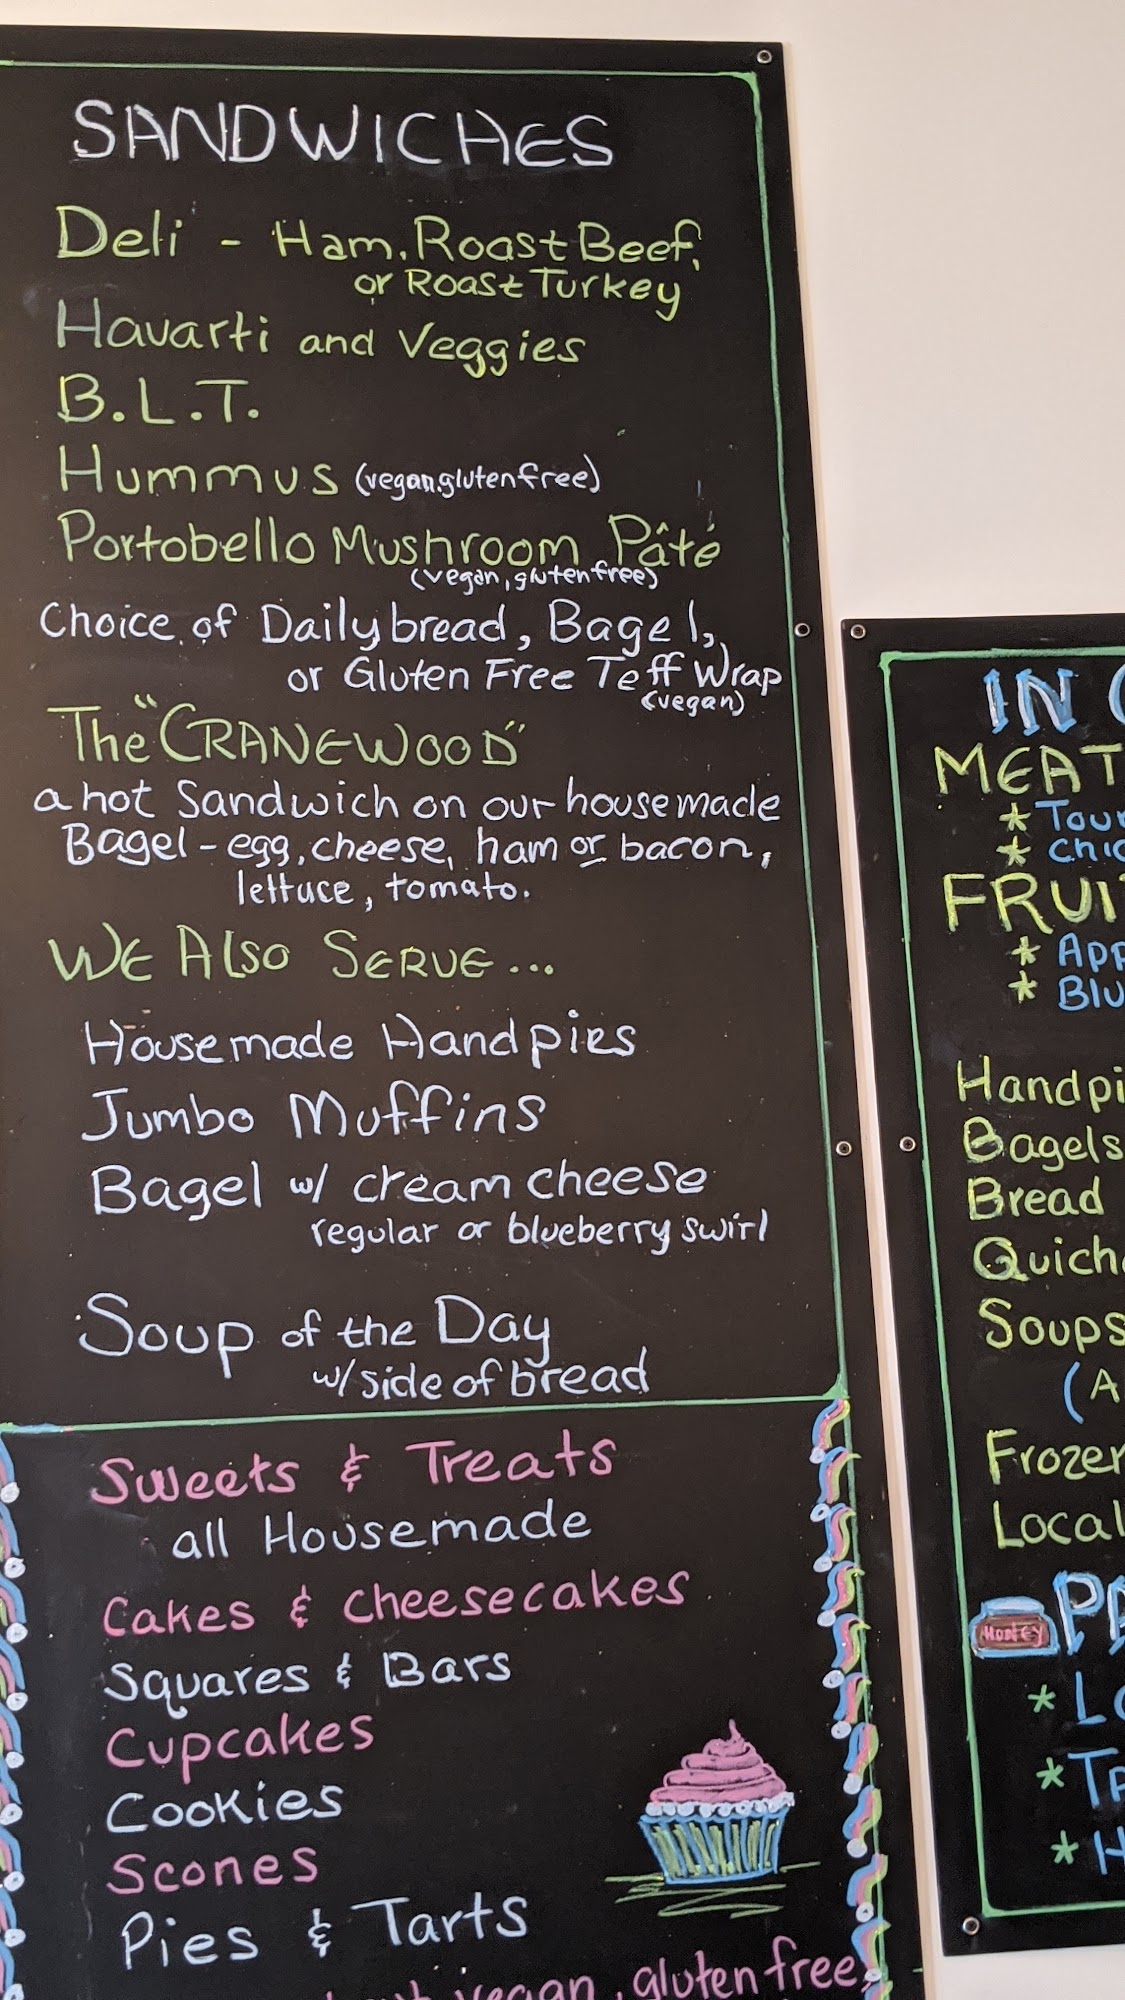 SANDWICHES
Deli - Ham, Roast Beef,
or Roast Turkey
Havarti and Veggies
B.L.T.
Hummus (vegan, gluten free)
Portobello Mushroom Pâté
(vegan, gluten free)
Choice of Daily bread, Bagel,
or Gluten Free Teff Wrap
(vegan)
The "CRANEWOOD"
a hot Sandwich on our housemade
Bagel - egg, cheese, ham or bacon,
lettuce, tomato.
WE ALSO SERVE...
Housemade Handpies
Jumbo Muffins
Bagel w/ cream cheese
regular or blueberry swirl
Soup of the Day
w/ side of bread
Sweets & Treats
all Housemade
Cakes & Cheesecakes
Squares & Bars
Cupcakes
Cookies
Scones
Pies & Tarts
vegan, gluten free,
IN
MEAT
* Tour
* Chic
FRUI
* App
* Blu
Handpi
Bagels
Bread
Quich
Soups
(A
Frozen
Local
HONEY